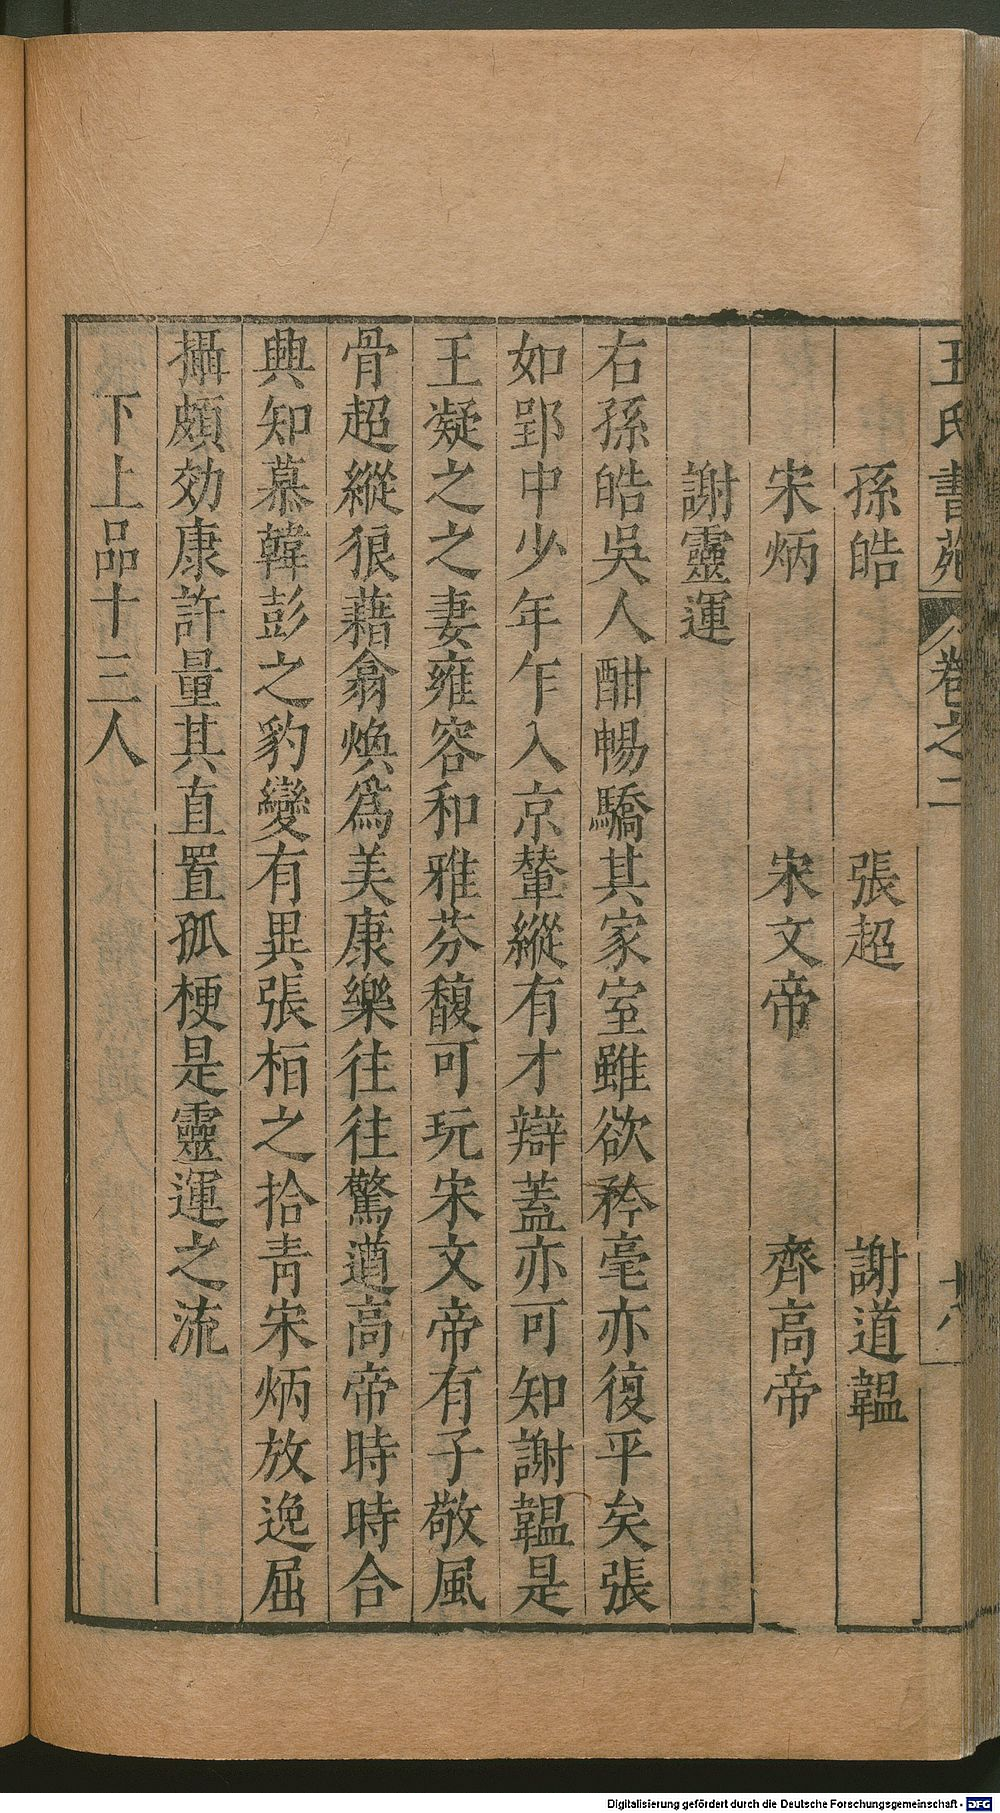 王氏書苑 卷之二 十八
孫皓 張超 謝道韞
宋炳 宋文帝 齊高帝
謝靈運
右孫皓吳人酣暢驕其家室雖欲矜毫亦復平矣張
如郢中少年乍入京輦縱有才辯蓋亦可知謝韞是
王凝之之妻雍容和雅芬馥可玩宋文帝有子敬風
骨超縱狠藉翕煥爲美康樂往往驚遒高帝時時合
典知慕韓彭之豹變有異張栢之拾青宋炳放逸屈
攝頗効康許量其直置孤梗是靈運之流
下上品十三人
Digitalisierung gefördert durch die Deutsche Forschungsgemeinschaft - DFG